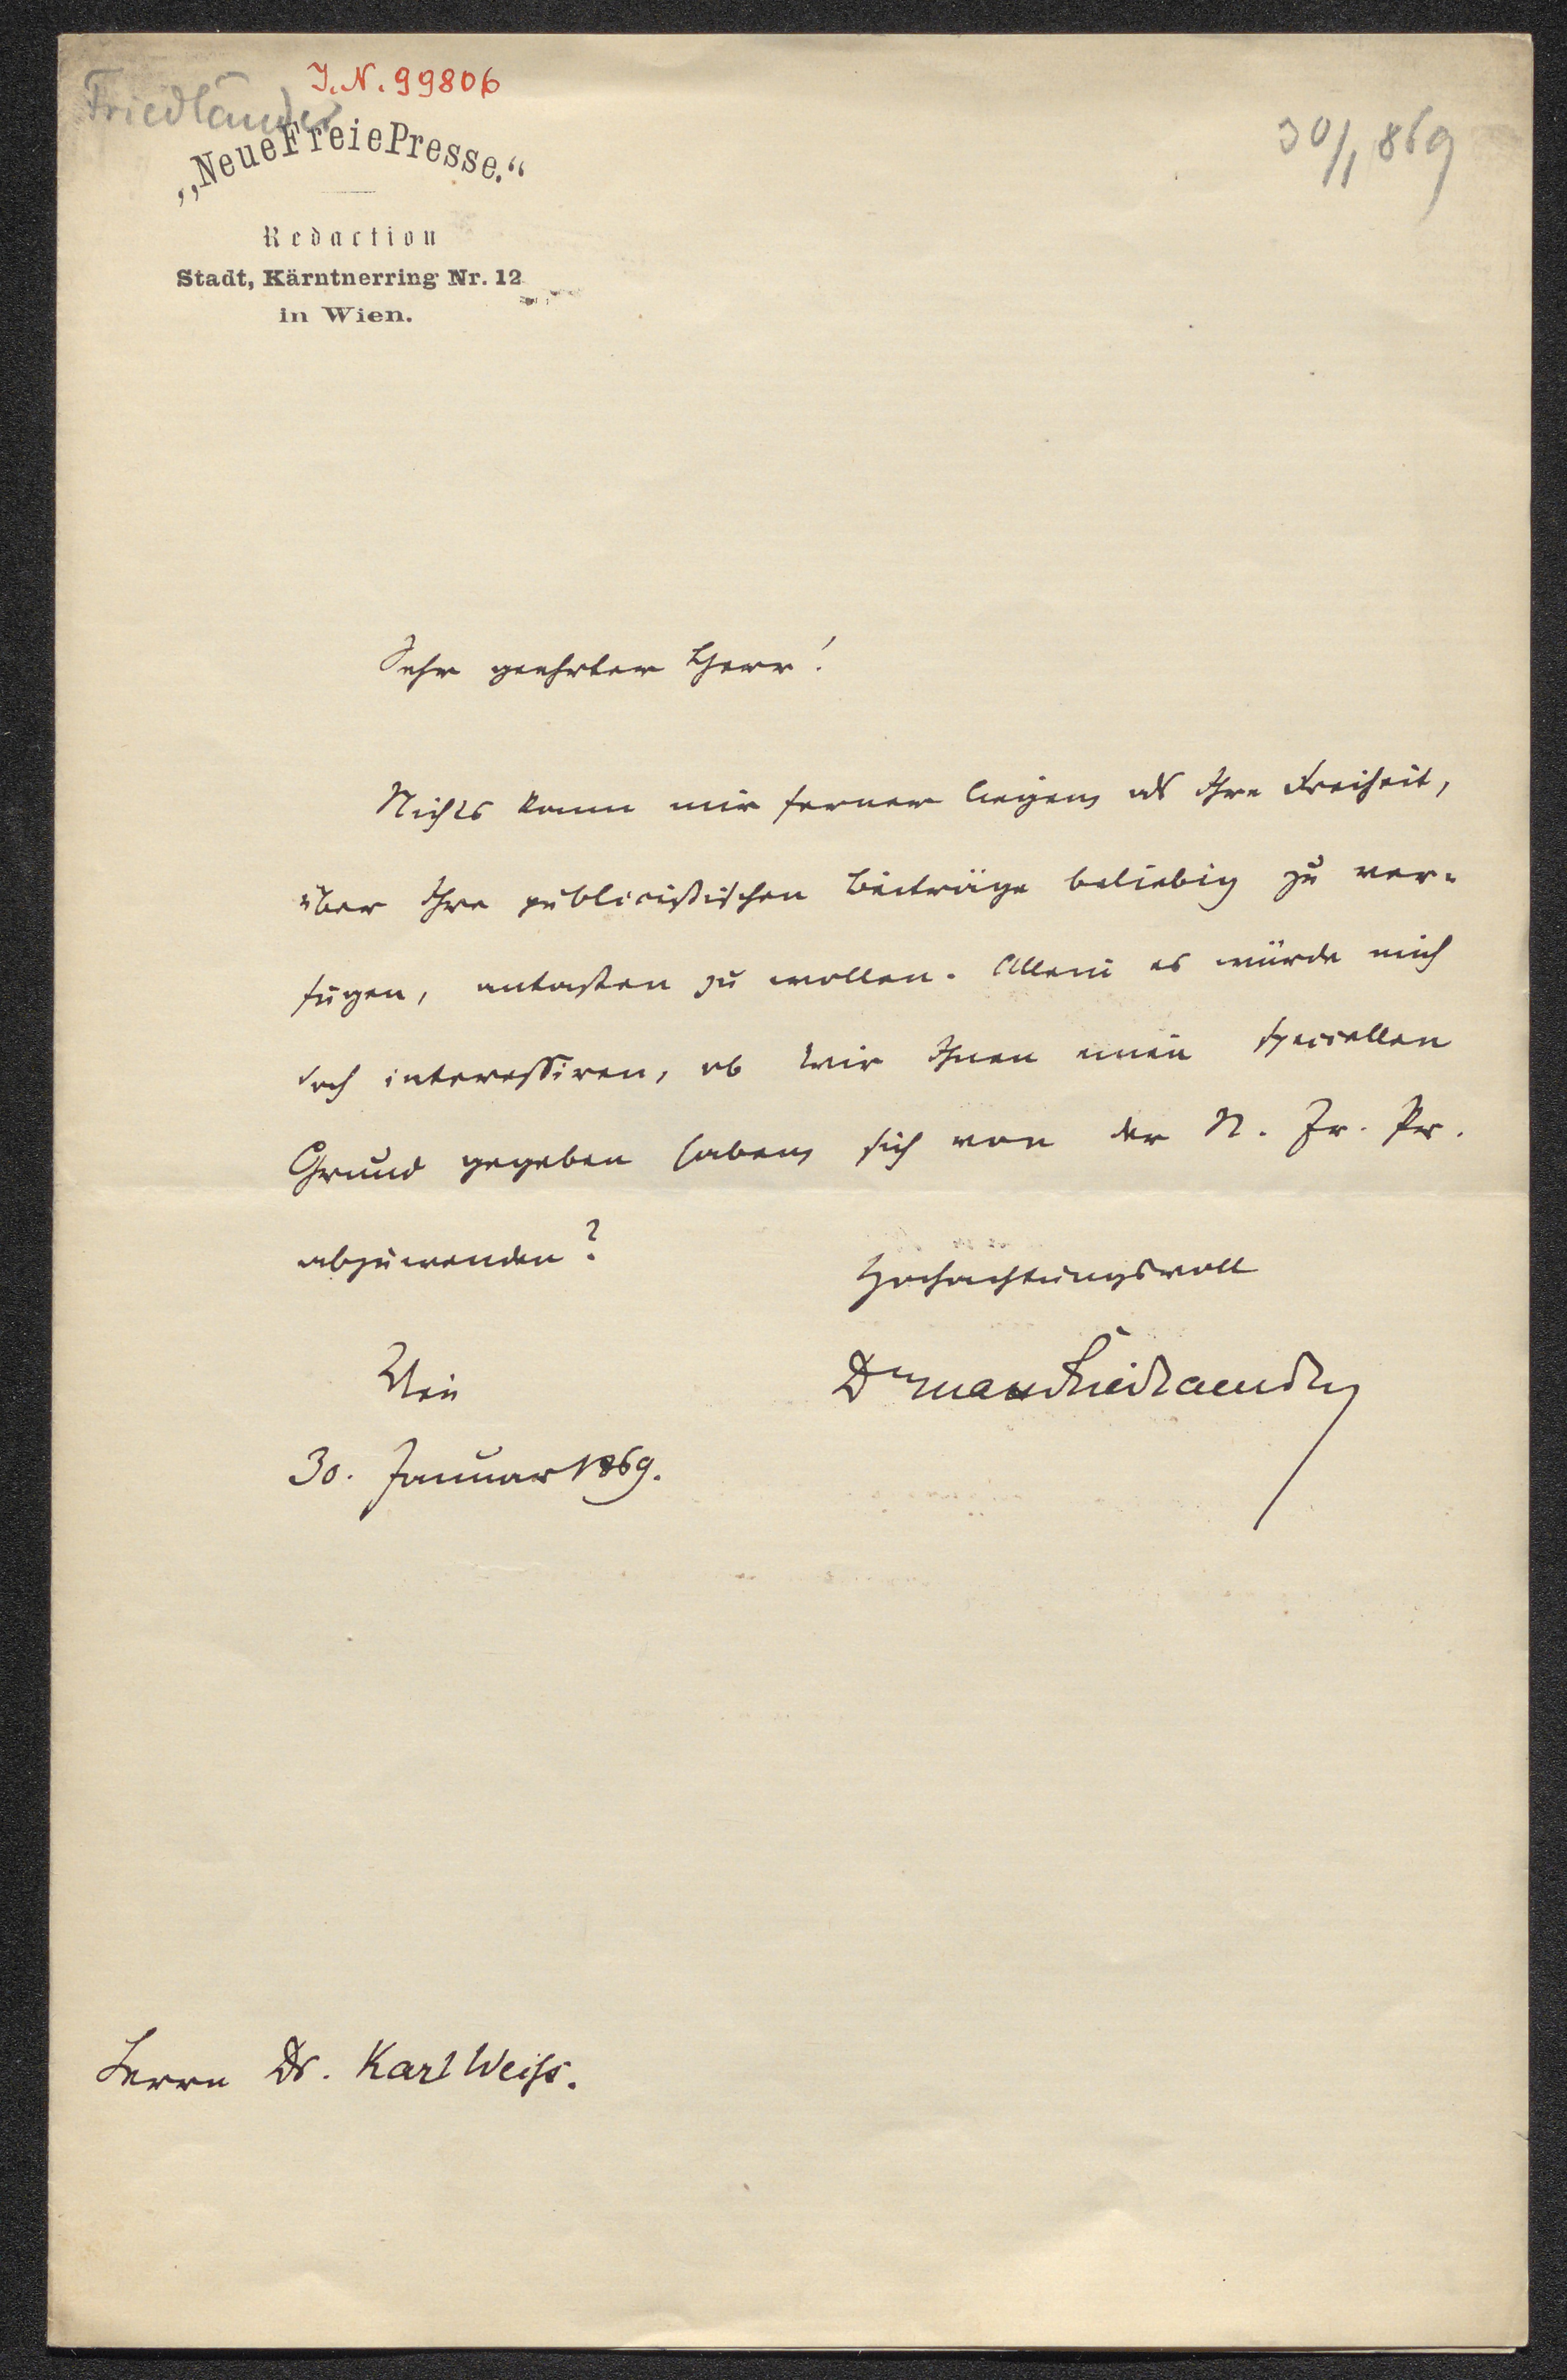 J. N. 99806
Friedländer
30/1 869
„Neue Freie Presse.“
Redaction
Stadt, Kärntnerring Nr. 12
in Wien.
Sehr geehrter Herr!
Nichts kann mir ferner liegen, als Ihre Freiheit,
über Ihre publicistischen Beiträge beliebig zu ver-
fügen, antasten zu wollen. Allein es würde mich
doch interessiren, ob wir Ihnen einen speciellen
Grund gegeben haben, sich von der N. Fr. Pr.
abzuwenden?
Hochachtungsvoll
Dr Max Friedlaender
Wien
30. Januar 1869.
Herrn Dr. Karl Weiss.